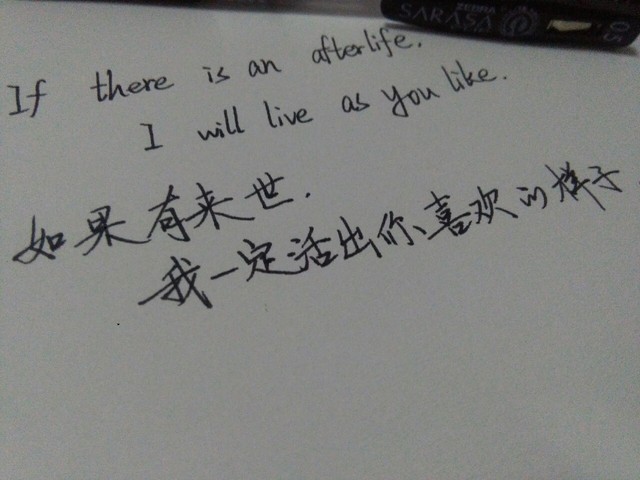 ZEBRA
SARASA
0.5
If there is an afterlife.
I will live as you like.
如果有来世.
我一定活出你喜欢的样子